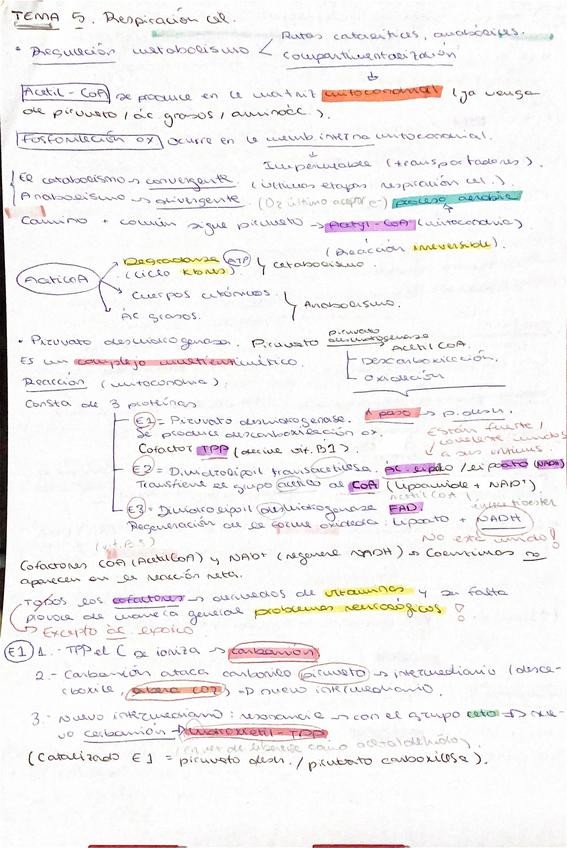 TEMA 5. Respiración cel.
• Regulación metabolismo < Rutas catabólicas, anabólicas.
Compartimentalización
Acetil-CoA se produce en la matriz mitocondrial (ya venga
de piruvato / ác grasos / aminoác.).
Fosforilación ox ocurre en la memb interna mitocondrial.
Impermeable (transportadores).
El catabolismo → convergente (últimas etapas, respiración cel.).
Anabolismo → divergente. (O2 último aceptor e-) proceso aerobio
Camino + común sigue piruvato → Acetyl-CoA (mitocondria)
(Reacción irreversible).
AcetilCoA
Degradarse ATP
(ciclo Krebs). } catabolismo
Cuerpos cetónicos
Ác grasos. } Anabolismo.
• Piruvato deshidrogenasa. Piruvato piruvato deshidrogenasa → Acetil CoA.
Es un complejo multienzimático.
Descarboxilación
Oxidación
Reacción (mitocondria):
Consta de 3 proteínas
E1 = Piruvato deshidrogenasa. 1 paso → p. desh.
Se produce descarboxilación ox.
Cofactor TPP (derive vit. B1).
Están fuerte / covalente unidos a sus enzimas
E2 = Dihidrolipoil transacetilasa. ác. lipoico / lipoato (NAD)
Transfiere el grupo acetilo al CoA (lipoamida + NAD+)
Acetil CoA
E3 = Dihidrolipoil deshidrogenasa FAD.
Regeneración de la forma oxidada: lipoato + NADH
No está unido!
(vit. B5)
Cofactores CoA (AcetilCoA) y NAD+ (regenera NADH) → Coenzimas no
aparecen en la reacción neta.
Todos los cofactores → derivados de vitaminas y su falta
provoca de manera general problemas neurológicos!
Excepto ác lipoico
E1 1.- TPP el C se ioniza → carbanión
2.- Carbanión ataca carbonilo piruvato → intermediario (desca-
rboxila, libera CO2) → nuevo intermediario.
3.- Nuevo intermediario: resonancia → con el grupo ceto → nue-
vo carbanión → hidroxietil-TPP
(en vez de liberarse como acetaldehído)
(Catalizado E1 = piruvato desh. / piruvato carboxilasa).